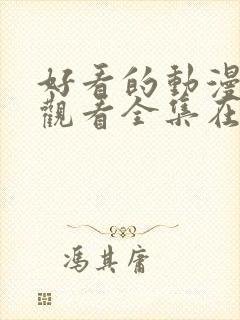 好看的動漫
觀看全集在
馮其庸